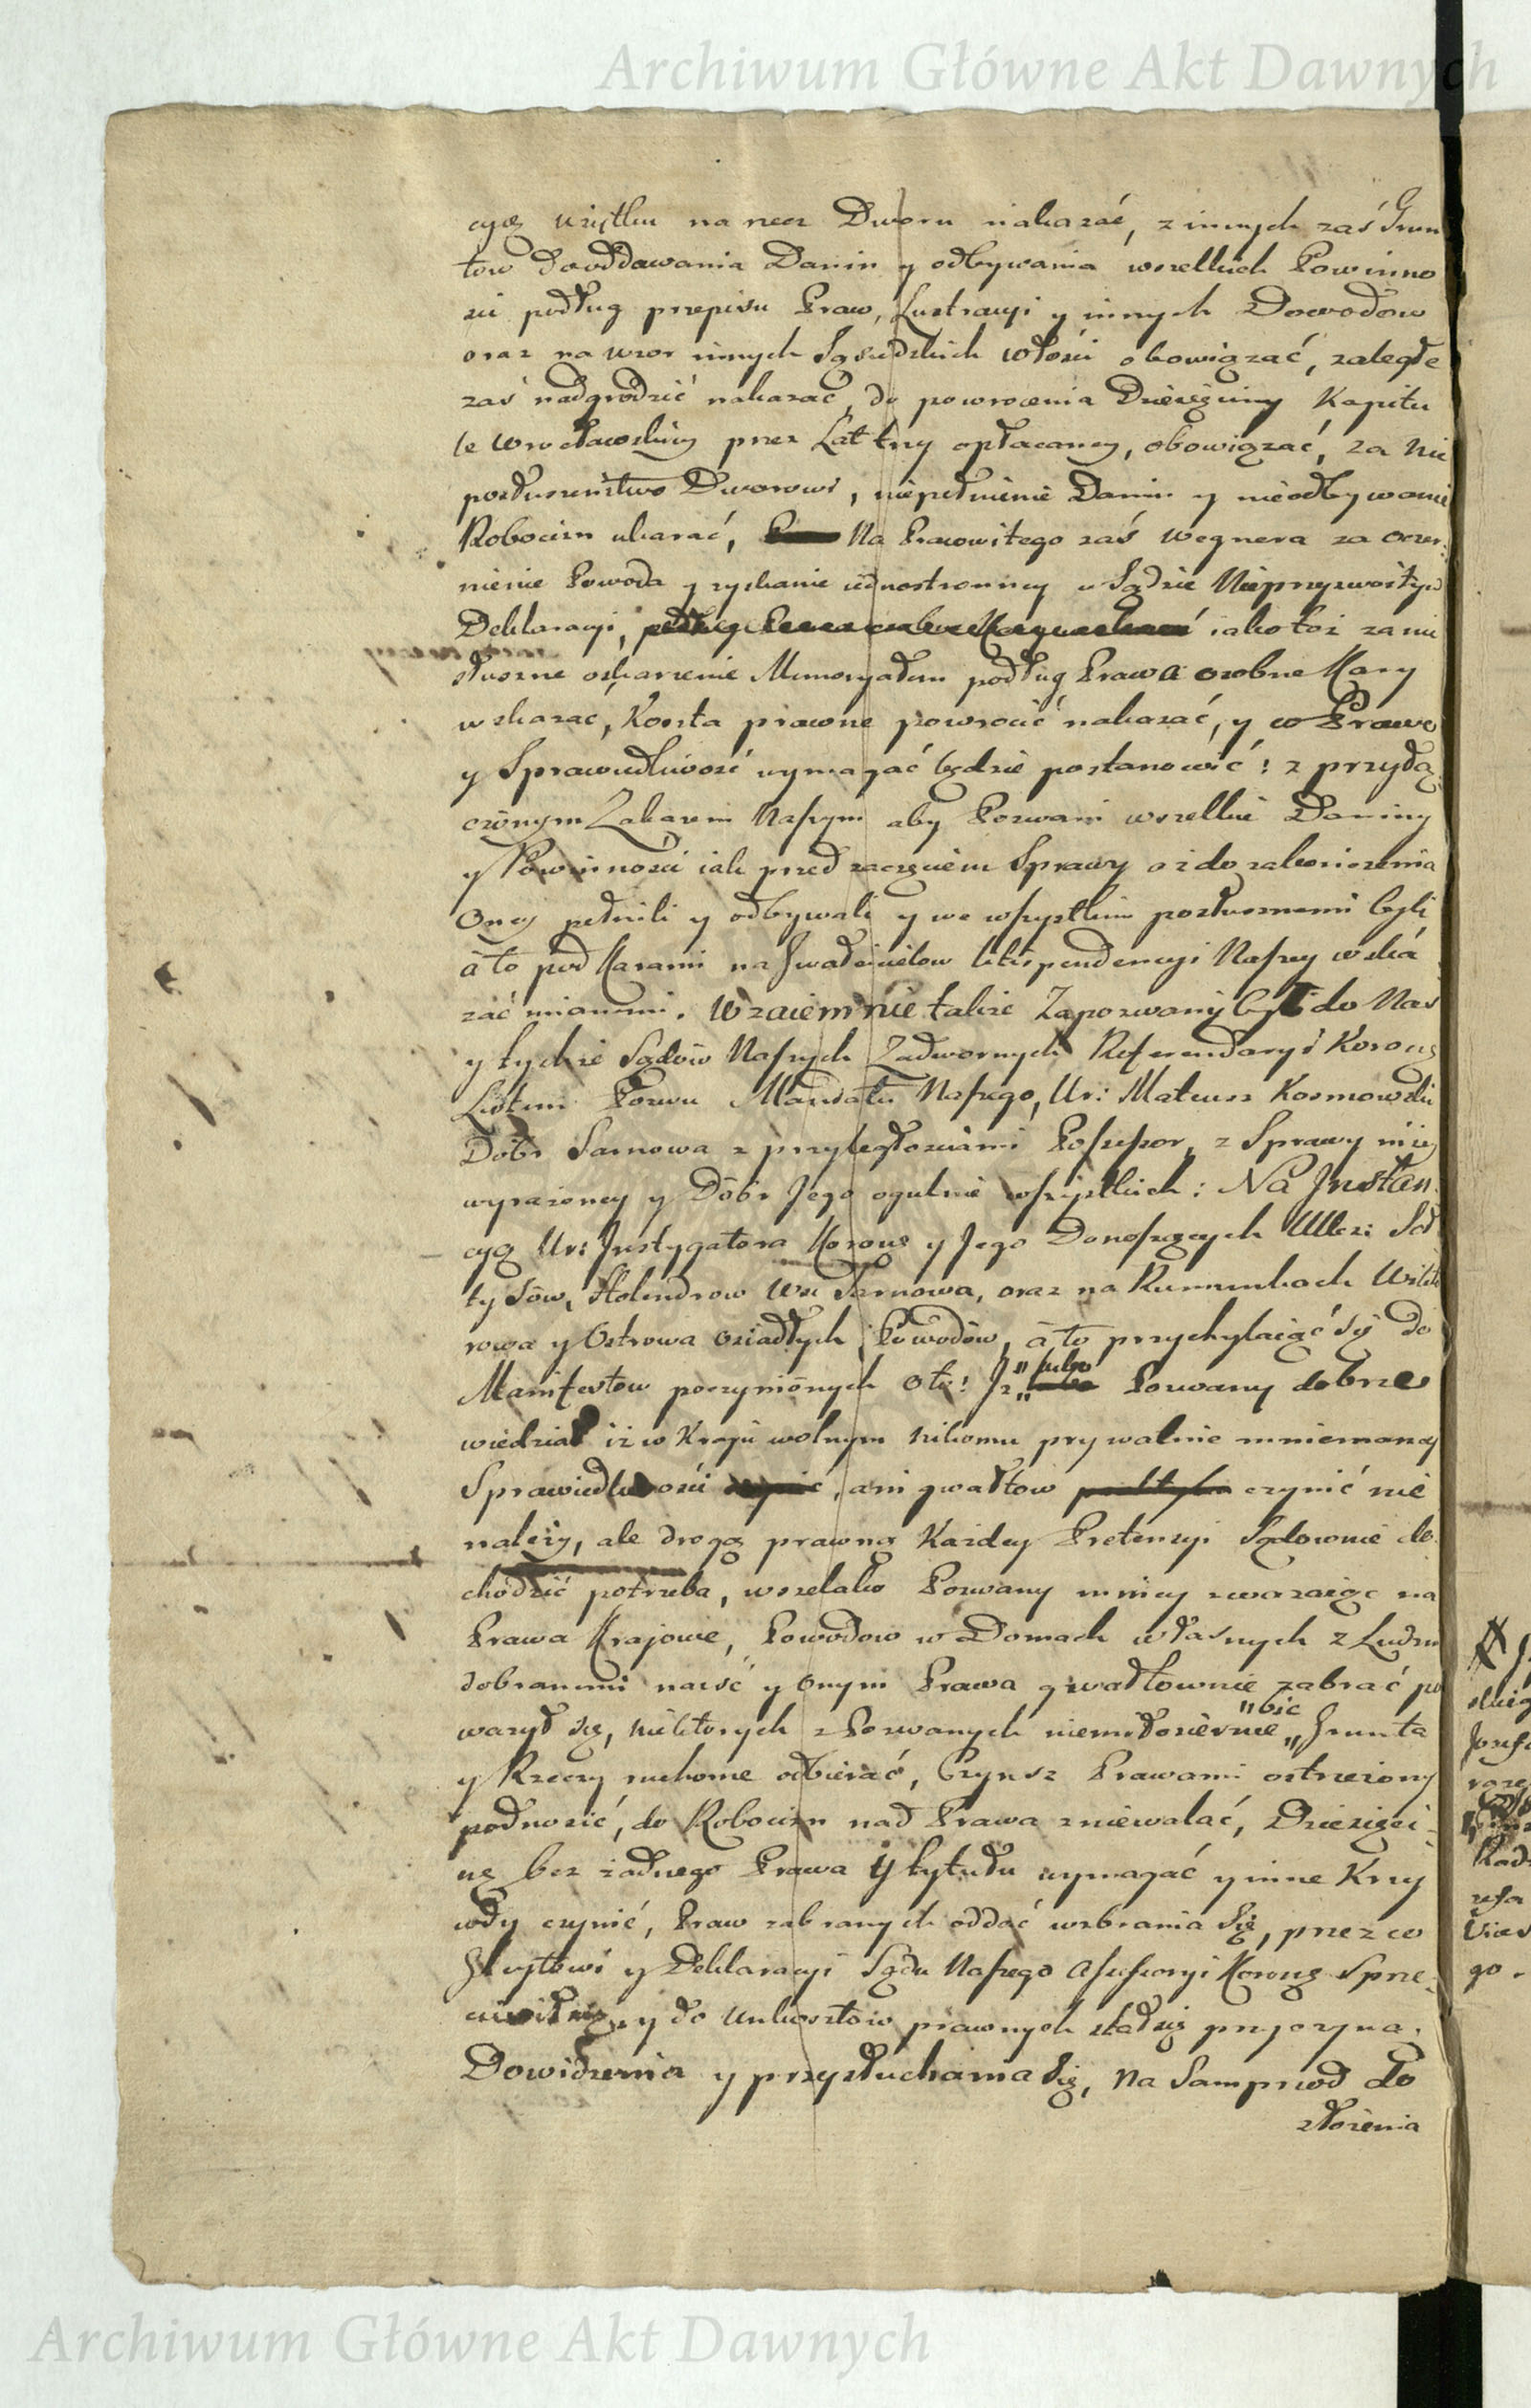 Archiwum Główne Akt Dawnych
cyę użytku na rzecz Dworu nakazać, z innych zaś Grun
tow do oddawania Danin y odbywania wszelkich Powinno
sci podług przepisu Praw, Lustracyi y innych Dowodow
oraz na wzor innych Sąsiedzkich włości obowiązać, zaległe
zaś nadgrodzić nakazać, do powrocenia Dziesięciny Kapitu
le Wrocławskiey przez Lat trzy opłacaney, obowiązać, za nie
posłuszeństwo Dworowi, niepełnienie Danin y nieodbywanie
Robocizn ukarać, Na Pracowitego zaś Wegnera za oczer:
nienie Powoda y zyskanie iednostronney w Sądzie Nieprzyzwoitey
Deklaracyi, iako też za nie
słuszne oskarzenie Memoryałem podług Prawa osobne Kary
wskazac, Koszta prawne powrocić nakazać, y co Prawo
y Sprawiedliwość wymagać będzie postanowić: z przyłą
czonym Zakazem Naszym aby Pozwani wszelkie Daniny
y Powinności iak przed zaczęciem Sprawy aż do zakończenia
Oney pełnili y odbywali y we wszystkim posłusznemi byli
à to pod Karami na Gwałcicielow litispendencyi Naszey wska
zać mianemi. Wzaiemnie także Zapozwany był do Nas
y tychże Sądów Naszych Zadwornych Referendaryi Korony
Listem Pozwu Mandatu Naszego, Ur: Mateusz Kosmowski
Dóbr Sarnowa z przyległościami Possessor, z Sprawy niżey
wyrażoney y Dóbr Jego ogulnie wszystkich: Na Instan
cyą Ur: Instygatora Korony y Jego Donoszących Ucz: Soł
tysów, Holendrow Wsi Sarnowa, oraz na Rumunkach
rowa y Ostrowa osiadłych Powodów, à to przychylaiąc się do
Manifestow poczynionych oto! Iż „lubo Pozwany dobrze
wiedział iż w Kraju wolnym nikomu prywatnie mniemaney
Sprawiedliwości, ani gwałtow czynić nie
należy, ale drogą prawną Każdey Pretensyi Sądownie do
chodzić potrzeba, wszelako Pozwany mniey zważaiąc na
Prawa Krajowe, Powodow w Domach własnych z Ludzmi
dobranemi naiść y onym Prawa gwałtownie zabrać po
ważył się, niektorych z Pozwanych niemiłosiernie „bić „Grunta
y Rzeczy ruchome odbierać, Czynsz Prawami ostrzeżony
podnosić, do Robocizn nad Prawa zniewalać, Dziesięci
nę bez żadnego Prawa y tytułu wymagać y inne Krzy
wdy czynić, Praw zabranych oddać wzbrania się, przez co
Gleytowi y Deklaracyi Sądu Naszego Assessoryi Korony Sprze
ciwił się, y do Unkosztow prawnych stał się przyczyną.
Do widzenia y przysłuchania się, na Samprzod do
złożenia
go.
Archiwum Główne Akt Dawnych